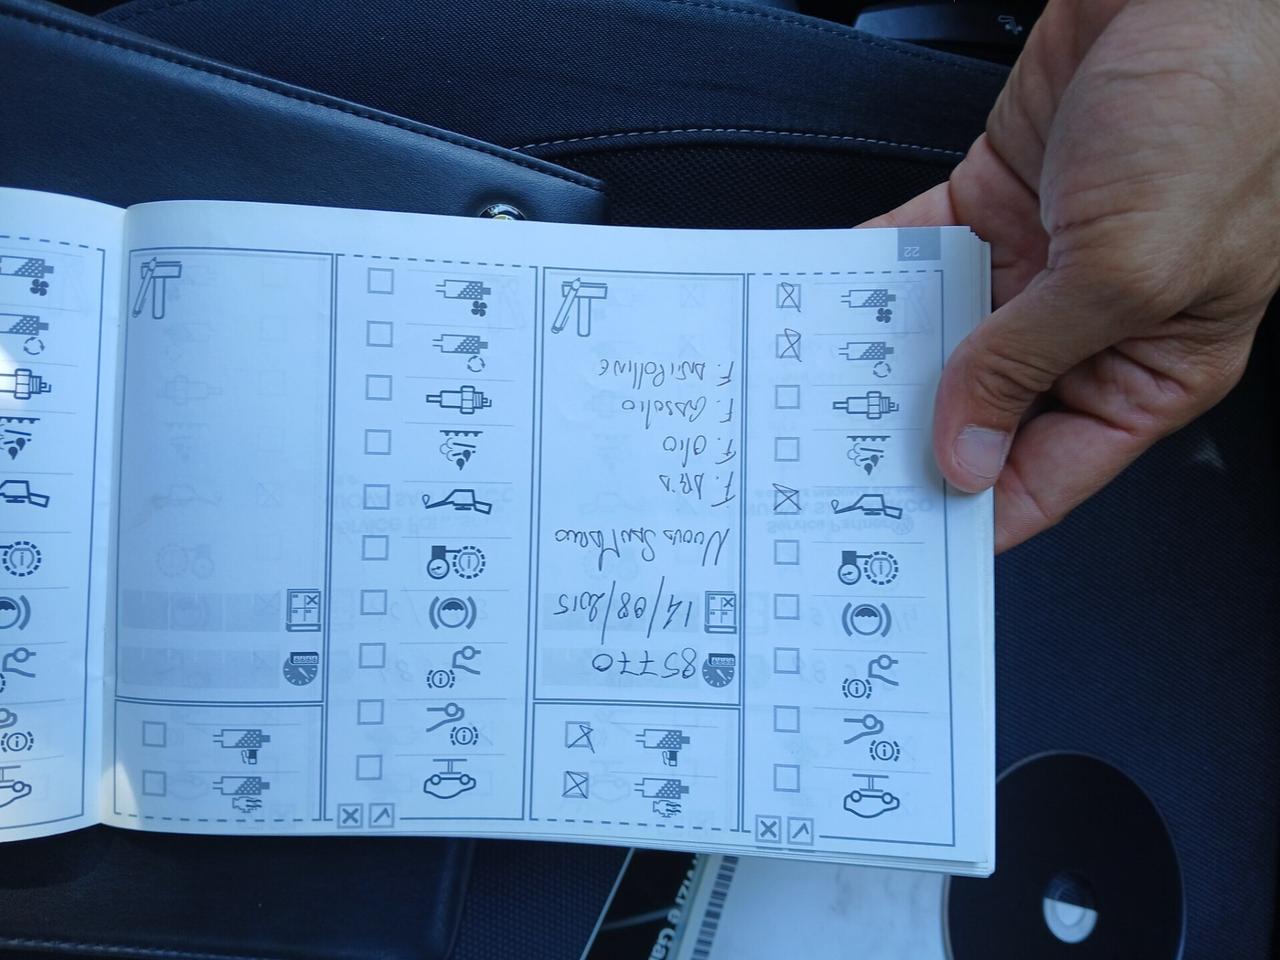 85770
14/08/2015
Nuova San Marco
F. ARIA
F. Olio
F. Gasolio
F. ANTiPolliNE
22